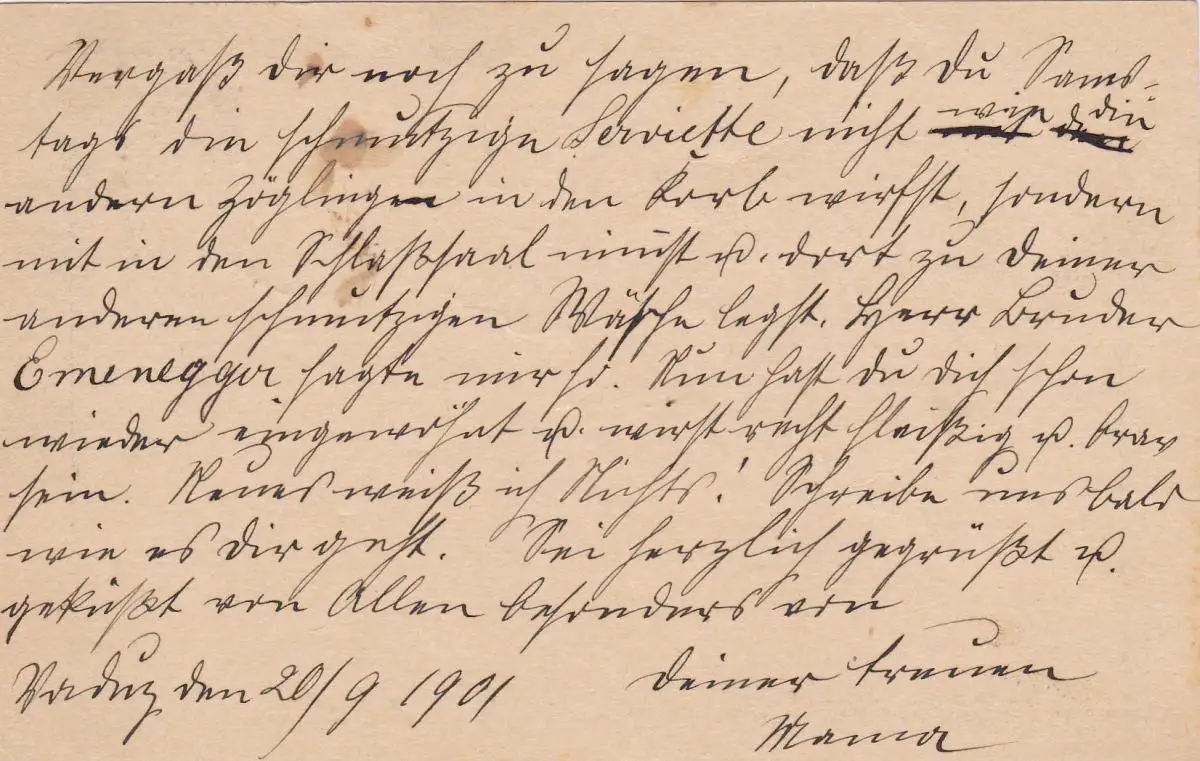 Vergaß dir noch zu sagen, daß du Sams-
tags die schmutzige Serviette nicht wie die
andern Zöglinge in den Korb wirfst, sondern
mit in den Schlafsaal nimst u. dort zu deiner
anderen schmutzigen Wäsche legst. Herr Bruder
Emenegger sagte mir so. Nun hast du dich schon
wieder eingewöhnt u. wirst recht fleißig u. brav
sein. Neues weiß ich Nichts! Schreibe uns bald
wie es dir geht. Sei herzlich gegrüßt u.
geküßt von Allen besonders von
deiner treuen
Vaduz den 20/9 1901
Mama